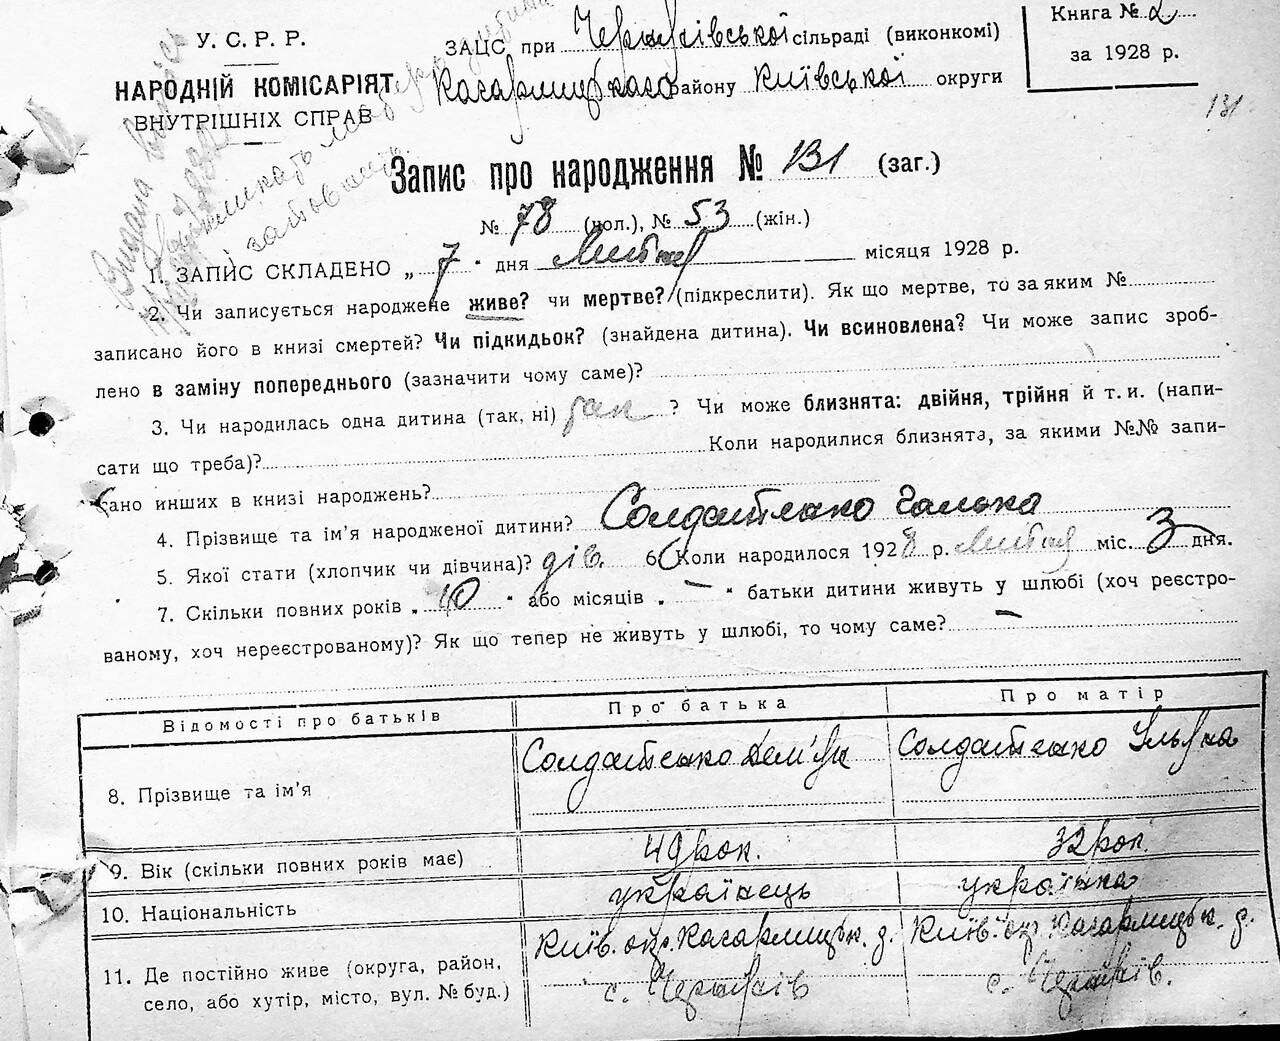 У. С. Р. Р.
НАРОДНІЙ КОМІСАРІЯТ
ВНУТРІШНІХ СПРАВ
ЗАЦС при Черняхівської сільраді (виконкомі)
Кагарлицького району Київської округи
Книга № 2
за 1928 р.
131
Видана
Запис про народження № 131 (заг.)
№ 78 (чол.), № 53 (жін.)
1. ЗАПИС СКЛАДЕНО „ 7 " дня Липня місяця 1928 р.
2. Чи записується народжене живе? чи мертве? (підкреслити). Як що мертве, то за яким №
записано його в книзі смертей? Чи підкидьок? (знайдена дитина). Чи всиновлена? Чи може запис зроб-
лено в заміну попереднього (зазначити чому саме)?
3. Чи народилась одна дитина (так, ні) так ? Чи може близнята: двійня, трійня й т. и. (напи-
сати що треба)? Коли народилися близнята, за якими №№ запи-
сано инших в книзі народжень?
4. Прізвище та ім'я народженої дитини? Солдатенко Галька
5. Якої стати (хлопчик чи дівчина)? дів. 6. Коли народилося 1928 р. Липня міс. 3 дня.
7. Скільки повних років „ 10 " або місяців „ — " батьки дитини живуть у шлюбі (хоч реєстро-
ваному, хоч нереєстрованому)? Як що тепер не живуть у шлюбі, то чому саме? —
Відомості про батьків Про батька Про матір
8. Прізвище та ім'я Солдатенко Дем'ян Солдатенко Ульяна
9. Вік (скільки повних років має) 49 рок. 32 рок.
10. Національність українець українка
11. Де постійно живе (округа, район, Київ. окр. Кагарлицьк. р. Київ. окр. Кагарлицьк. р.
село, або хутір, місто, вул. № буд.) с. Черняхів с. Черняхів.